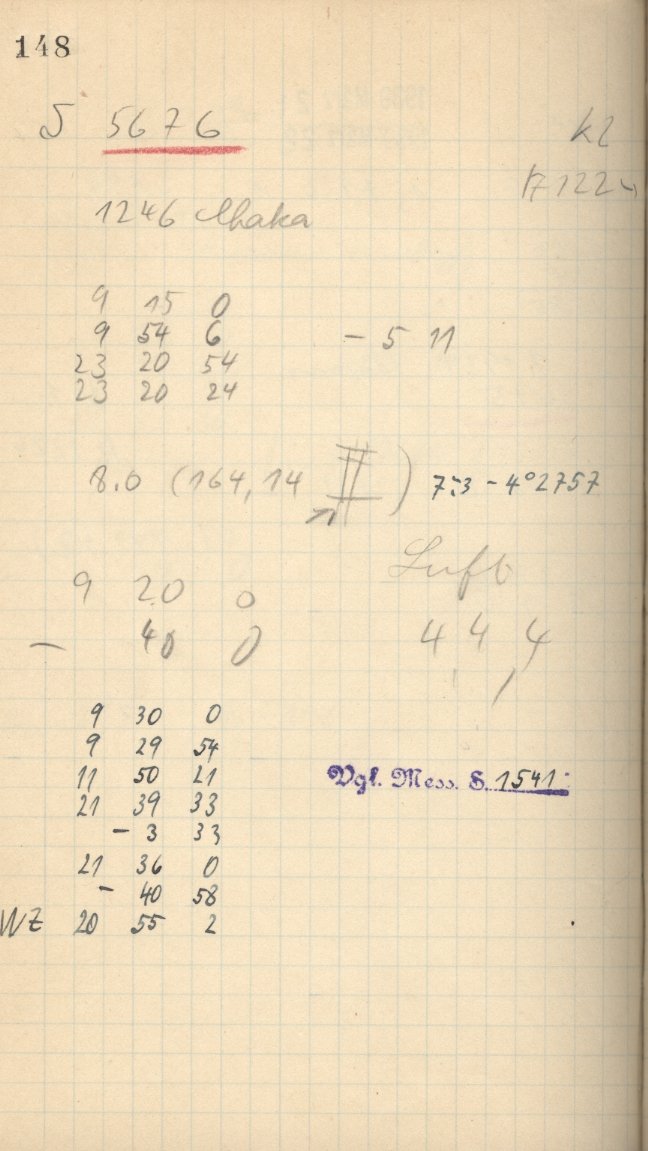 148
S 5676
K2
1246 Chaka
9 15 0
9 54 6 - 5 11
23 20 54
23 20 24
8.0 (164,14 ) 7.3 - 4°2757
Luft
9 20 0
- 40 0 4 4 4
9 30 0
9 29 54
11 50 21
21 39 33
- 3 33
21 36 0
- 40 58
WZ 20 55 2
Vgl. Mess. S. 1541.